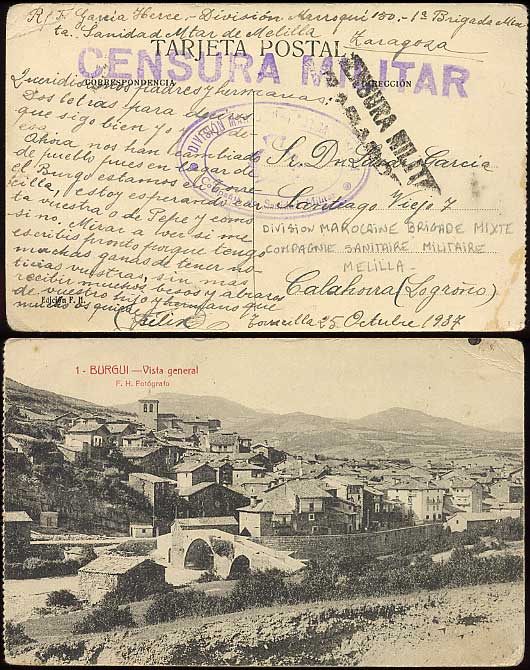 R/ F. García Herce.- División Marroquí 150.- 1ª Brigada Mixta.
Sanidad Mtar de Melilla
Zaragoza
TARJETA POSTAL
CENSURA MILITAR
CORRESPONDENCIA
DIRECCIÓN
CENSURA MILITAR
Queridísimos padres y hermanas:
Dos letras para deciros
que sigo bien y
Ahora nos han cambiado
de pueblo pues en lugar de
el Burgo estamos en Torre
cilla, estoy esperando car
ta vuestra o de Pepe y como
si no. Mirar a ver si me
escribís pronto porque tengo
muchas ganas de tener no
ticias vuestras, sin más
recibir muchos besos y abrazos
de vuestro hijo y hermano que
mucho os quiere
Félix
Sr. Dn. García
Santiago Viejo 7
DIVISION MAROCAINE BRIGADE MIXTE
COMPAGNIE SANITAIRE MILITAIRE
MELILLA-
Calahorra (Logroño)
Edición F. H.
Torrecilla 25 Octubre 1937
1 - BURGUI —Vista general
F. H. Fotógrafo